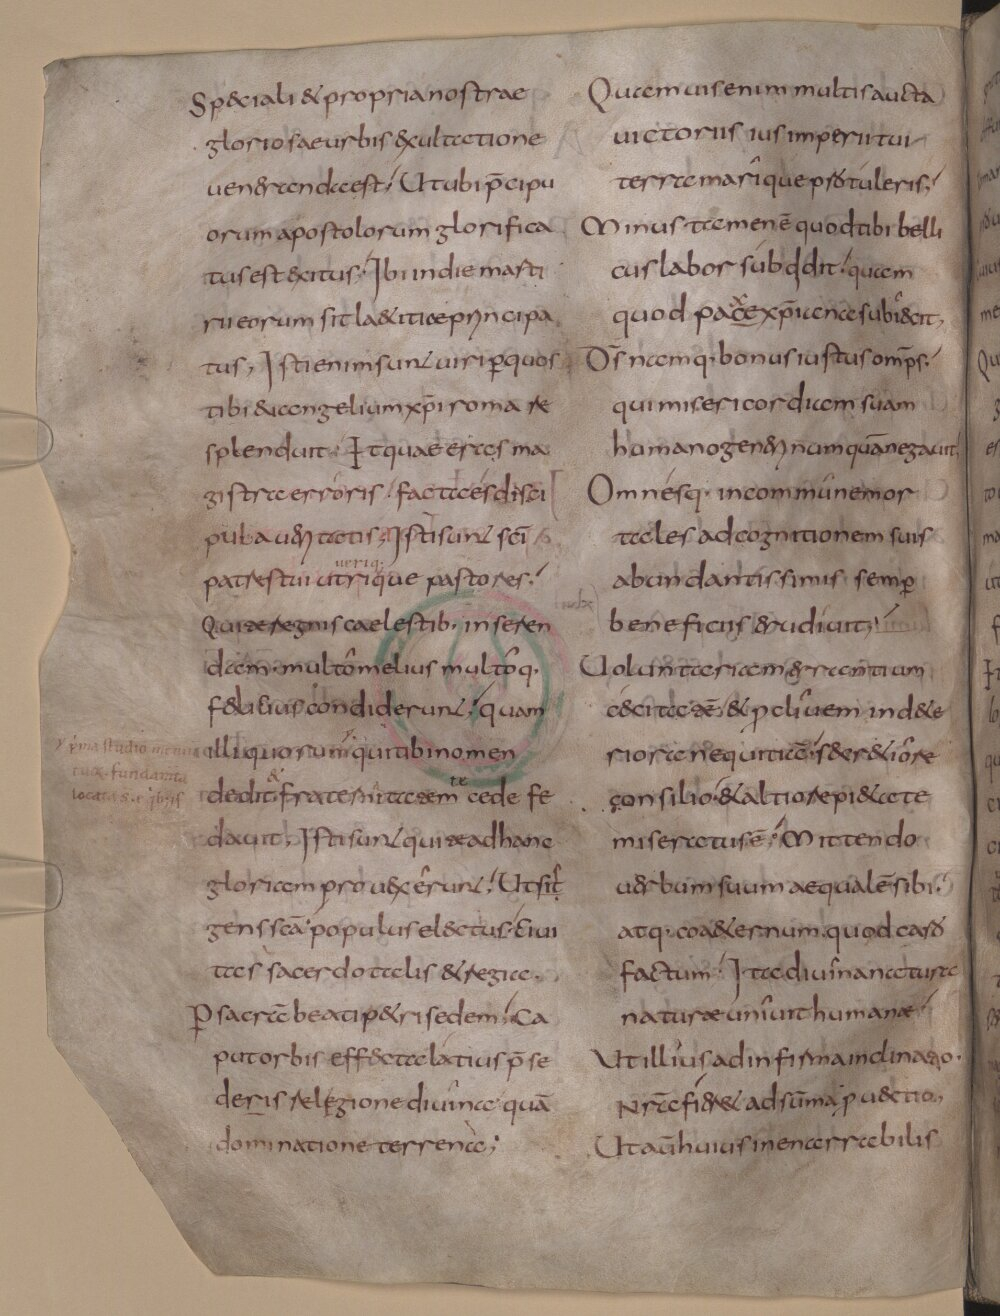 Speciali & propria nostrae
gloriosae urbis exultatione
ueneranda est; Ut ubi p̄cipu
orum apostolorum glorifica
tus est exitus; Ibi in die marti
rii eorum sit laetitiae principa
tus; Isti enim sunt uiri per quos
tibi euangelium xp̄i roma re
splenduit; Et quae eras ma
gistra erroris; facta es disci
pula ueritatis; Isti sunt sc̄i
ueriq;
patres tui utrique pastores;
Qui te regnis caelestib; inseren
dam; multo melius multoq;
felicius condiderunt; quam
illi quorum; qui tibi nomen
dedit; & fraterna te caede fe
dauit; Isti sunt qui te ad hanc
gloriam prouexerunt; Ut sit
gens sc̄a; populus electus; Ciui
tas sacerdotalis & regia;
P sacrā beati petri sedem; Ca
put orbis effecta latius p̄se
deris religione diuina quā
dominatione terrena;
Quam uis enim multis aucta
uictoriis ius imperii tui
terra mariq̄ue protuleris;
Minus tamen ē quod tibi belli
cus labor subdidit; quam
quod pax xp̄iana subiecit,
D̄s namq; bonus iustus omp̄s;
qui misericordiam suam
humano generi numquā negauit,
Omnesq; in commune mor
tales ad cognitionem suis
abundantissimis semp
beneficiis erudiuit;
Uoluntariam errantium
caecitatē & procliuem in dete
riora nequitiā; secretiore
consilio; & altiore pietate
miseratus ē; Mittendo
uerbum suum aequalē sibi;
atq; coaeternum quod caro
factum; Ita diuinam naturā
naturae uniuit humanae;
Ut illius ad infima inclinatio;
Nr̄a fieret ad sūma puectio,
Ut aūt huius inenarrabilis